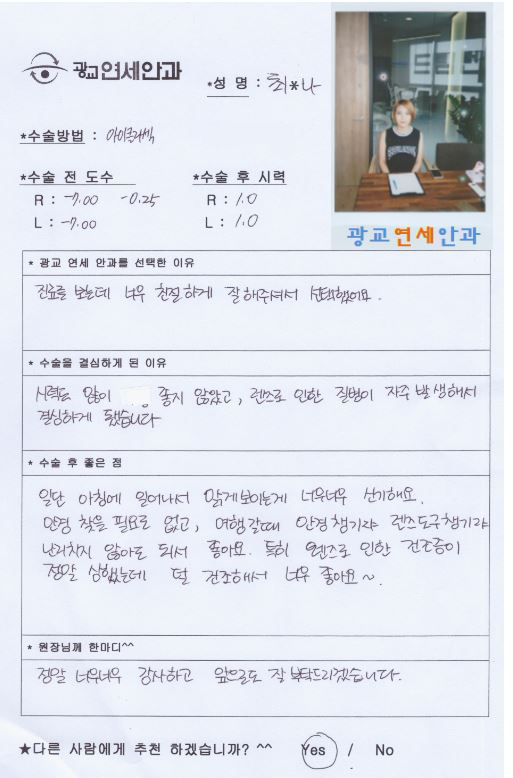 광교연세안과
*성 명 : 최*나
*수술방법 : 아이클리어
*수술 전 도수 *수술 후 시력
R : -7.00 -0.25 R : 1.0
L : -7.00 L : 1.0
광교연세안과
* 광교 연세 안과를 선택한 이유
진료를 보는데 너무 친절하게 잘해주셔서 선택했어요.
* 수술을 결심하게 된 이유
시력도 많이 좋지 않았고, 렌즈로 인한 질병이 자주 발생해서
결심하게 됐습니다
* 수술 후 좋은 점
일단 아침에 일어나서 맑게보이는게 너무너무 신기해요.
안경 찾을 필요도 없고, 여행갈때 안경챙기랴 렌즈도구챙기랴
난리치지 않아도 되서 좋아요. 특히 렌즈로 인한 건조증이
정말 심했는데 덜 건조해서 너무 좋아요~.
* 원장님께 한마디^^
정말 너무너무 감사하고 앞으로도 잘 부탁드리겠습니다.
★다른 사람에게 추천 하겠습니까? ^^ Yes / No